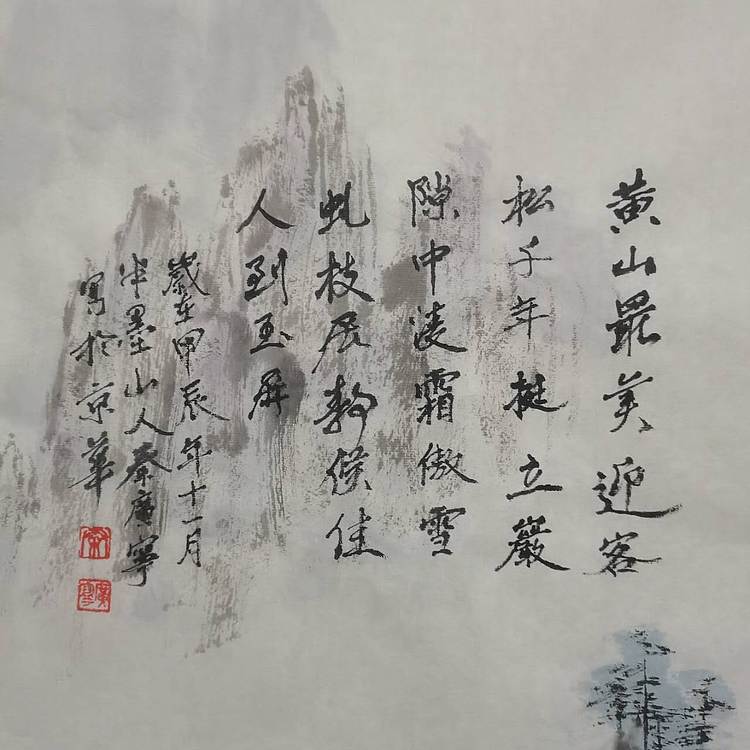 黄山最美迎客
松千年挺立巖
隙中淩霜傲雪
虬枝展敬候佳
人到玉屏
歲在甲辰年十一月
半墨山人秦廣寧
寫於京華
秦
廣寧